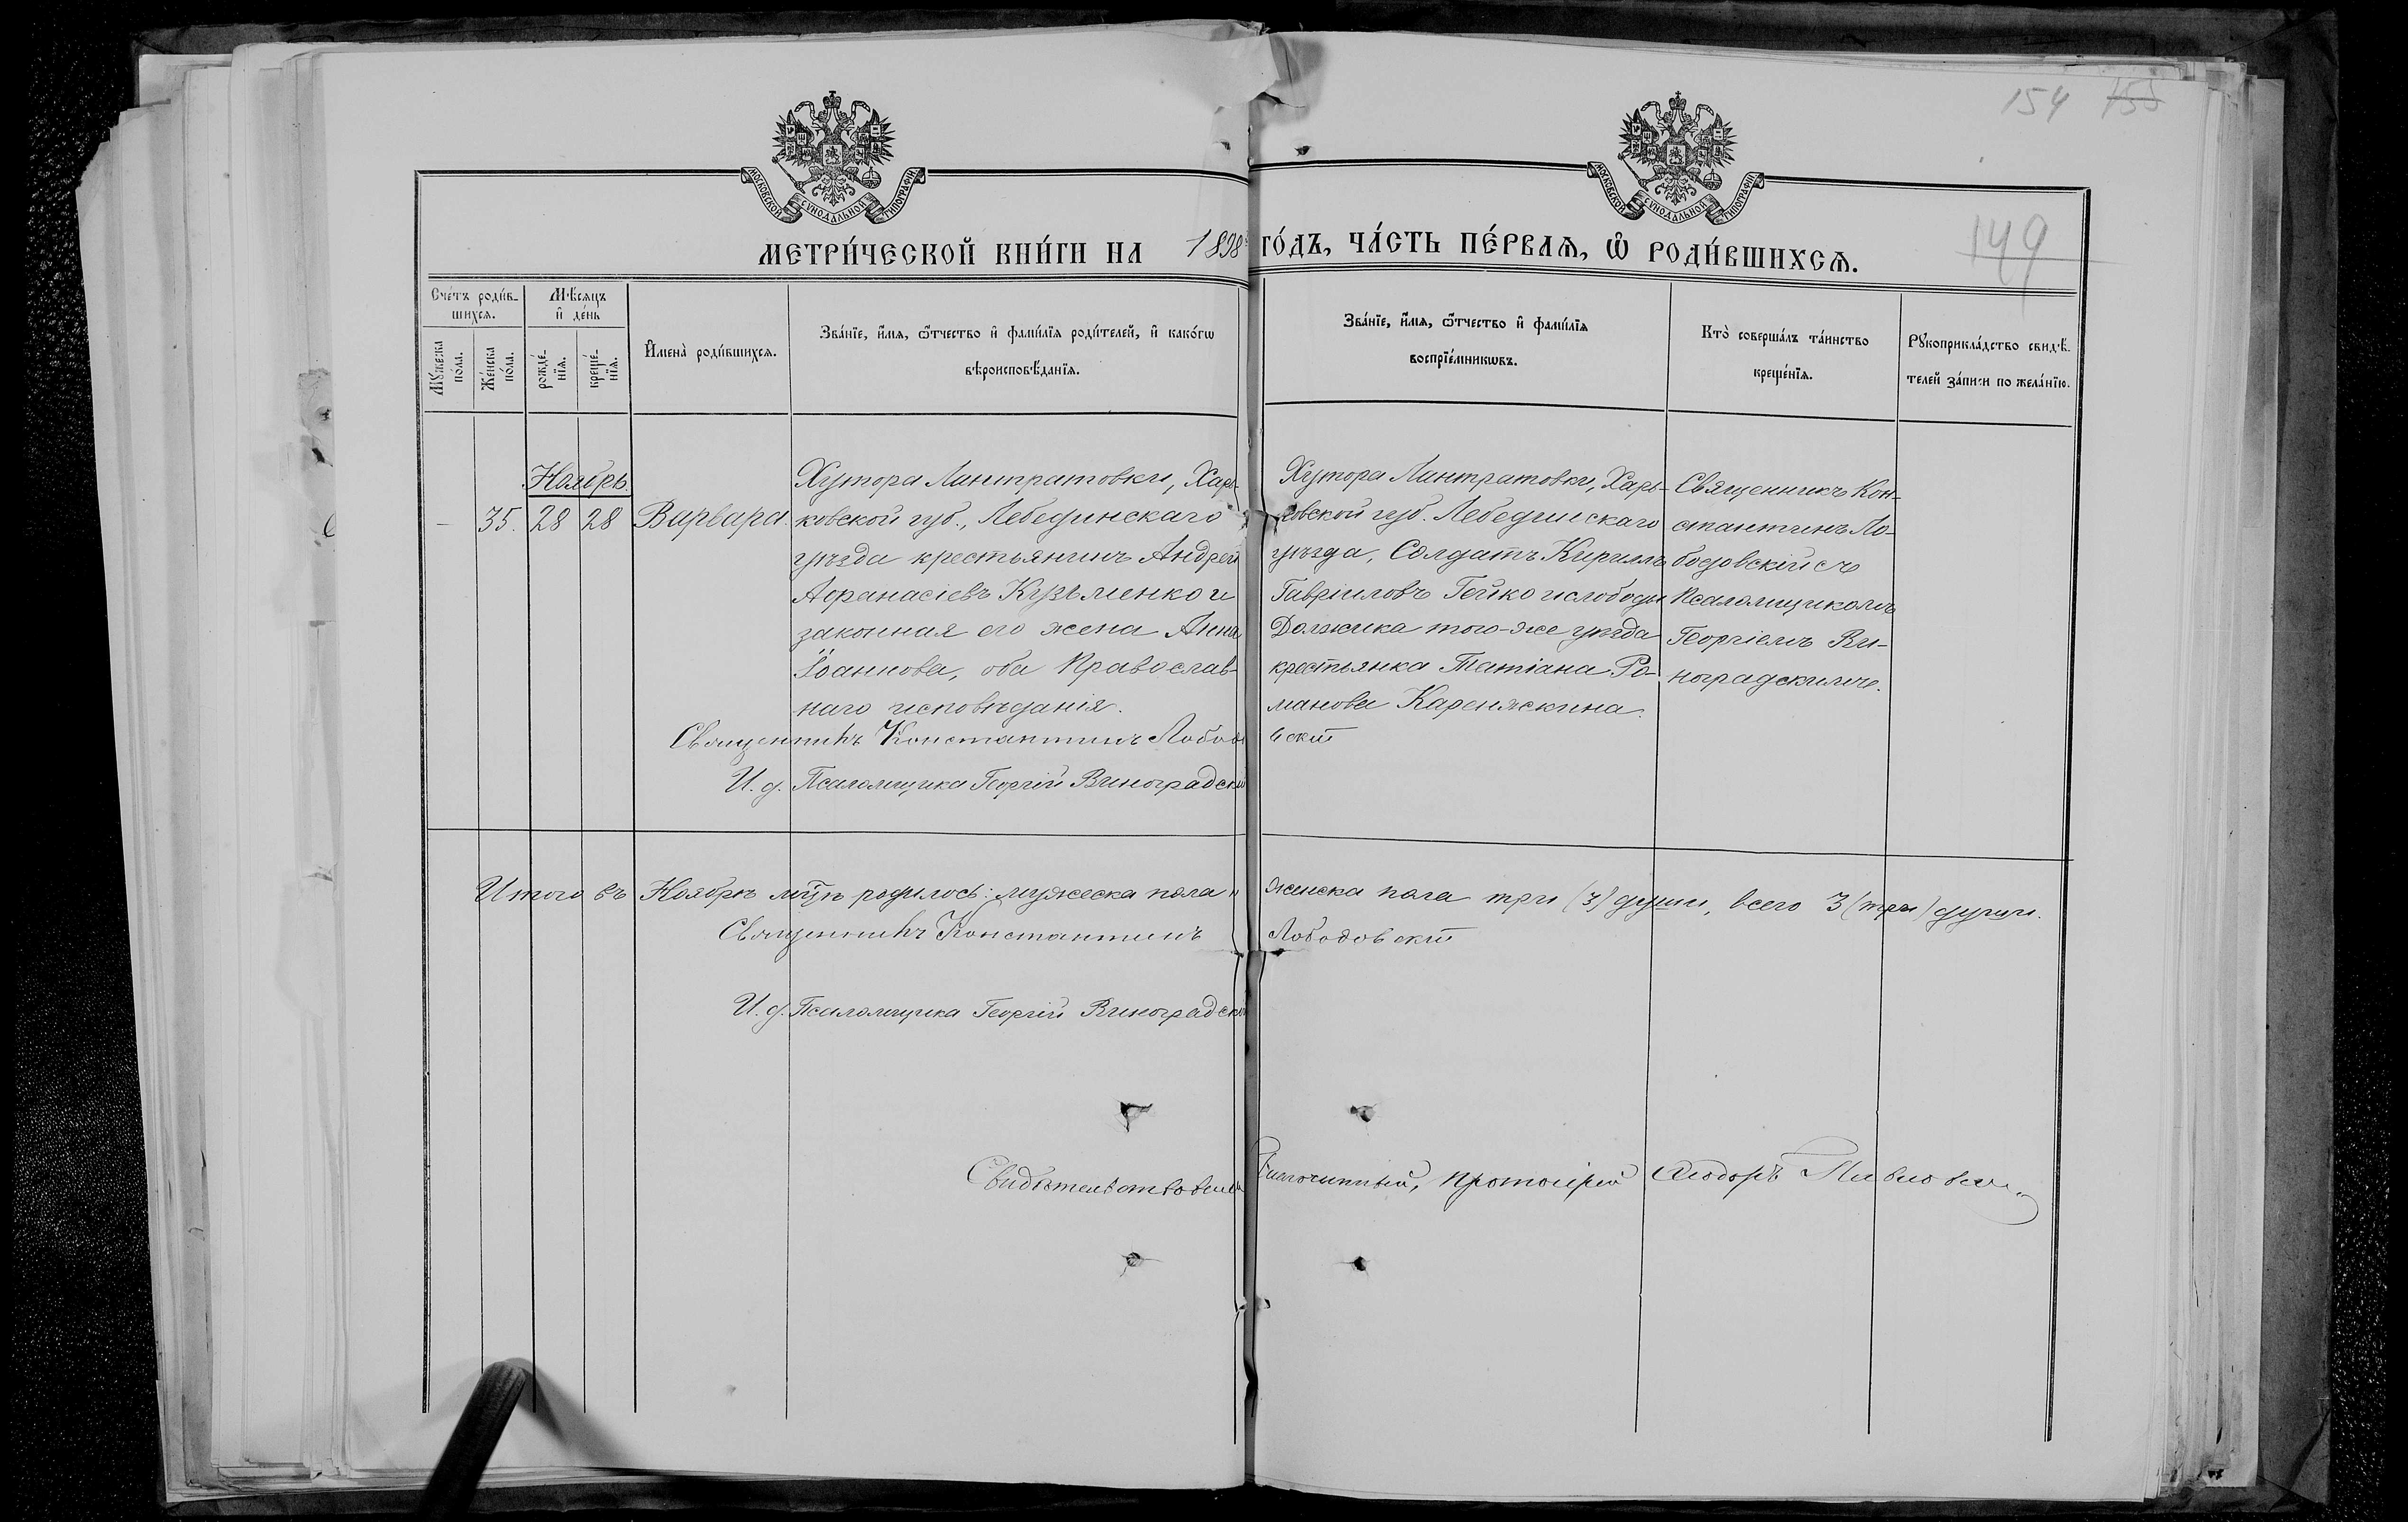 154 155
149
МОСКОВСКОЙ СѴНОДАЛЬНОЙ ТИПОГРАФІИ
МОСКОВСКОЙ СѴНОДАЛЬНОЙ ТИПОГРАФІИ
МЕТРИ́ЧЕСКОЙ КНИ́ГИ НА 1898 ГО́ДЪ, ЧА́СТЬ ПЕ́РВАѦ, Ѿ РОДИ́ВШИХСѦ.
Сче́тъ роди́в-
шихсѧ.
Мꙋ́жеска
по́ла.
Же́нска
по́ла.
Мѣ́сѧцъ
и҆ де́нь
рожде́-
нїѧ.
креще́-
нїѧ.
И҆мена̀ роди́вшихсѧ.
Зва́нїе, и҆́мѧ, ѻ҆́тчество и҆ фамѝлїѧ роди́телей, и҆ како́гѡ
вѣроисповѣ́данїѧ.
Зва́нїе, и҆́мѧ, ѻ҆́тчество и҆ фамѝлїѧ
воспрїе́мникѡвъ.
Кто̀ соверша́лъ та́инство
креще́нїѧ.
Рꙋкоприкла́дство свидѣ́-
телей за́писи по жела́нїю.
Ноябрь.
— 35. 28 28 Варвара.
Хутора Линтратовки, Харь-
ковской губ., Лебединскаго
уѣзда крестьянинъ Андрей
Афанасіевъ Кузьменко и
законная его жена Анна
Іоаннова, оба Православ-
наго исповѣданія.
Хутора Линтратовки, Харь-
ковской губ. Лебединскаго
уѣзда, Солдатъ Кириллъ
Гавріиловъ Гейко и слободы
Должика того-же уѣзда
крестьянка Татіана Ро-
манова Кареняскина.
Священникъ Кон-
стантинъ Ло-
бодовскій съ
Псаломщикомъ
Георгіемъ Ви-
ноградскимъ.
Священникъ Константинъ Лободовскій
И. д. Псаломщика Георгій Виноградскій
Итого въ Ноябрѣ мцѣ родилось: мужеска пола „ женска пола три (3) души, всего 3 (три) души.
Священникъ Константинъ Лободовскій
И. д. Псаломщика Георгій Виноградскій
Свидѣтельствовалъ Благочинный, протоіерей